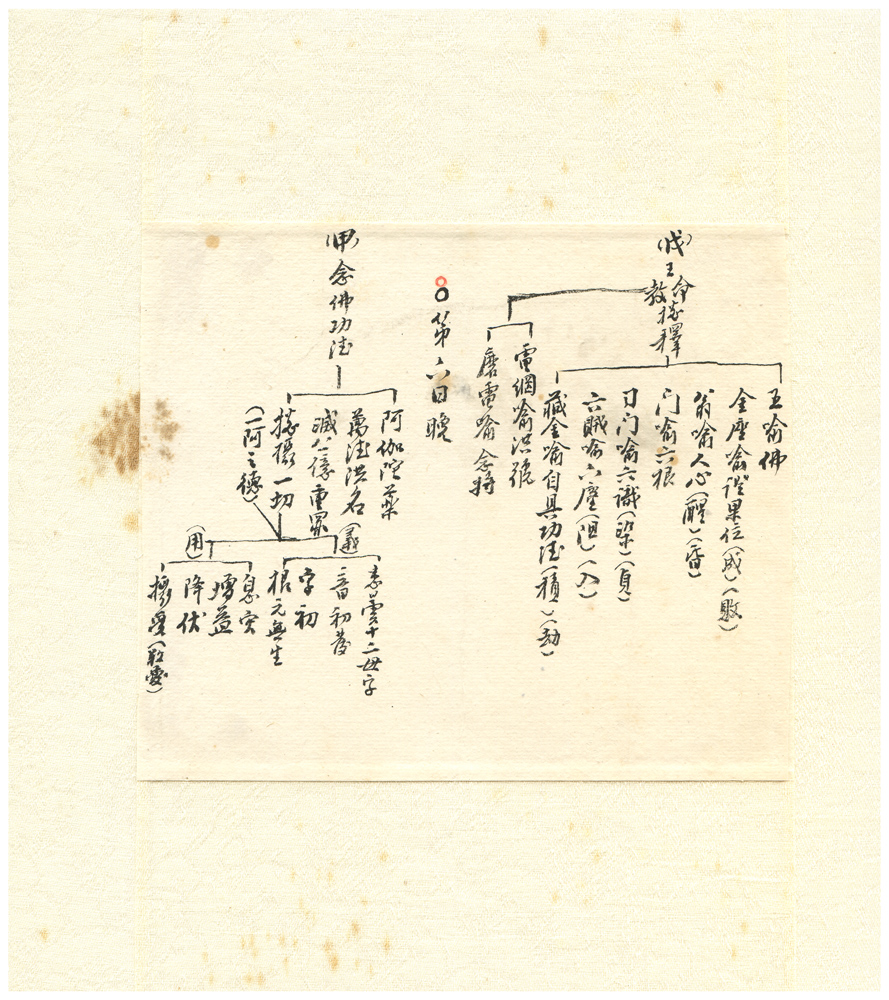 (戊)
王命
教據釋
王喻佛
金座喻證果位(成)(敗)
翁喻人心(醒)(昏)
门喻六根
刃门喻六識(染)(貞)
六賊喻六塵(阻)(入)
藏金喻自具功德(積)(劫)
電網喻洪號
磨電喻念持
第六日晚
(甲)
念佛功德
阿伽陀藥
萬德洪名
滅八億重罪
總攝一切
(一阿之德)
(義)
悉曇十二母字
音初發
字初
根元無生
(用)
息灾
增益
降伏
攝召(敬愛)